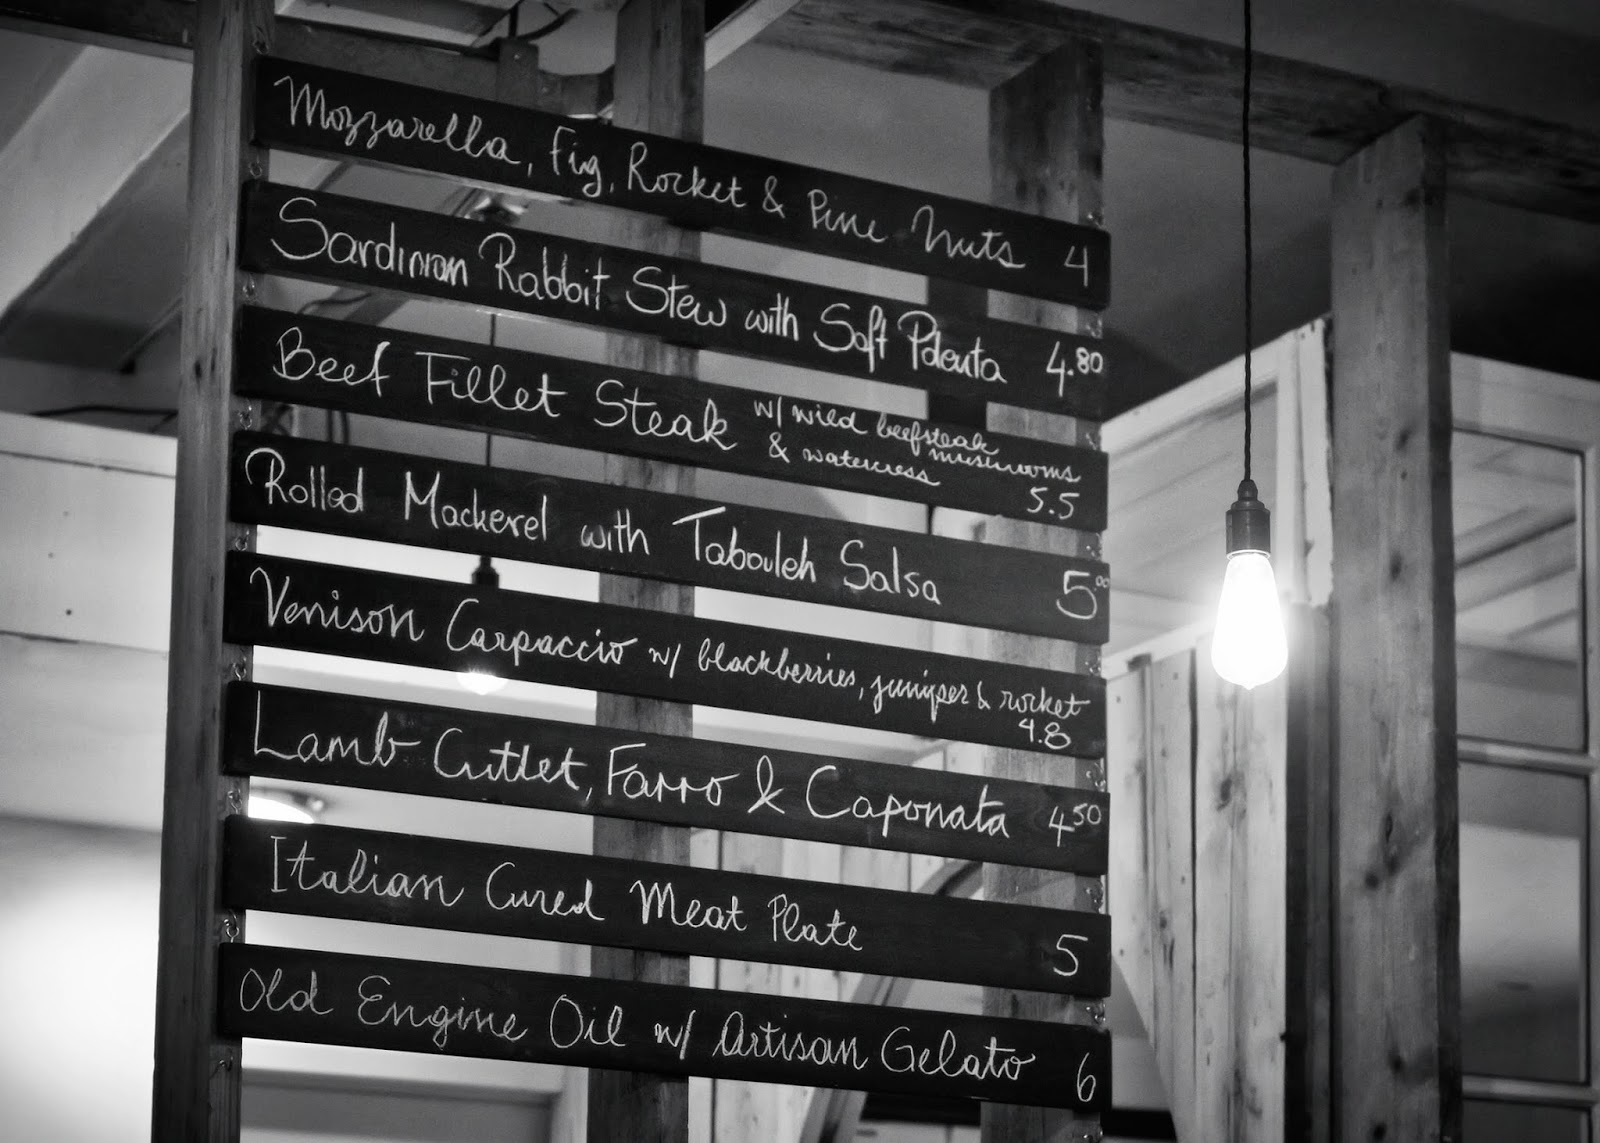 Mozzarella, Fig, Rocket & Pine Nuts 4
Sardinian Rabbit Stew with Soft Polenta 4.80
Beef Fillet Steak w/ wild beefsteak mushrooms
& watercress 5.5
Rolled Mackerel with Tabouleh Salsa 5.00
Venison Carpaccio w/ blackberries, juniper & rocket
4.8
Lamb Cutlet, Farro & Caponata 4.50
Italian Cured Meat Plate 5
Old Engine Oil w/ Artisan Gelato 6